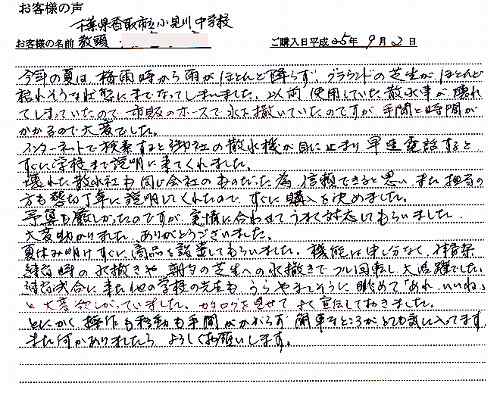 お客様の声
千葉県香取市立小見川中学校
お客様の名前 教頭 ご購入日平成25年9月2日
今年の夏は、梅雨時から雨がほとんど降らず、グラウンドの芝生がほとんど
枯れそうな状態にまでなってしまいました。以前使用していた散水車が壊れ
てしまっていたので、市販のホースで水を撒いていたのですが、手間と時間が
かかるので大変でした。
インターネットで検索すると御社の散水機が目に止まり、早速電話すると
すぐに学校まで説明に来てくれました。
壊れた散水車も同じ会社のものだった為、信頼できると思い、また担当の
方も親切丁寧に説明してくれたので、すぐに購入を決めました。
予算も厳しかったのですが、実情に合わせてうまく対応してもらいました。
大変助かりました。ありがとうございました。
夏休み明けすぐに商品を設置してもらいました。機能は申し分なく、体育祭
練習時の水撒きや、朝夕の芝生への水撒きでフル回転し大活躍でした。
対外試合に来た他の学校の先生も、うらやましそうに眺めて「あれ、いいね」
と大変うらやがっていました。カタログを見せてよく宣伝しておきました。
とにかく操作も移動も手間がかからず、簡単なところがとても気に入ってます。
また何かありましたら、よろしくお願いします。